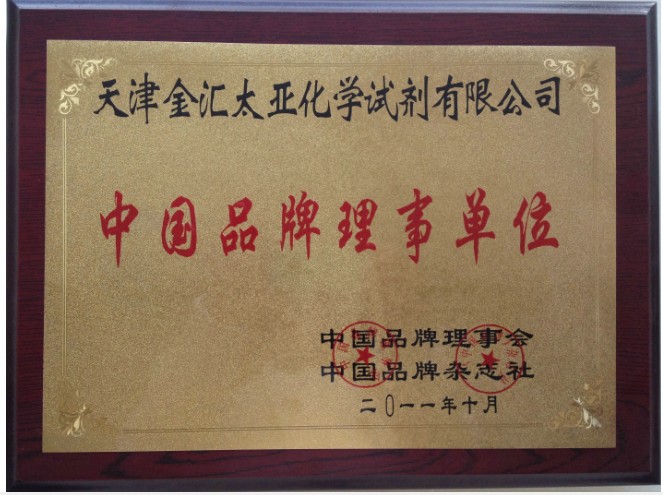 天津金汇太亚化学试剂有限公司
中国品牌理事单位
中国品牌理事会
中国品牌杂志社
二〇一一年十月